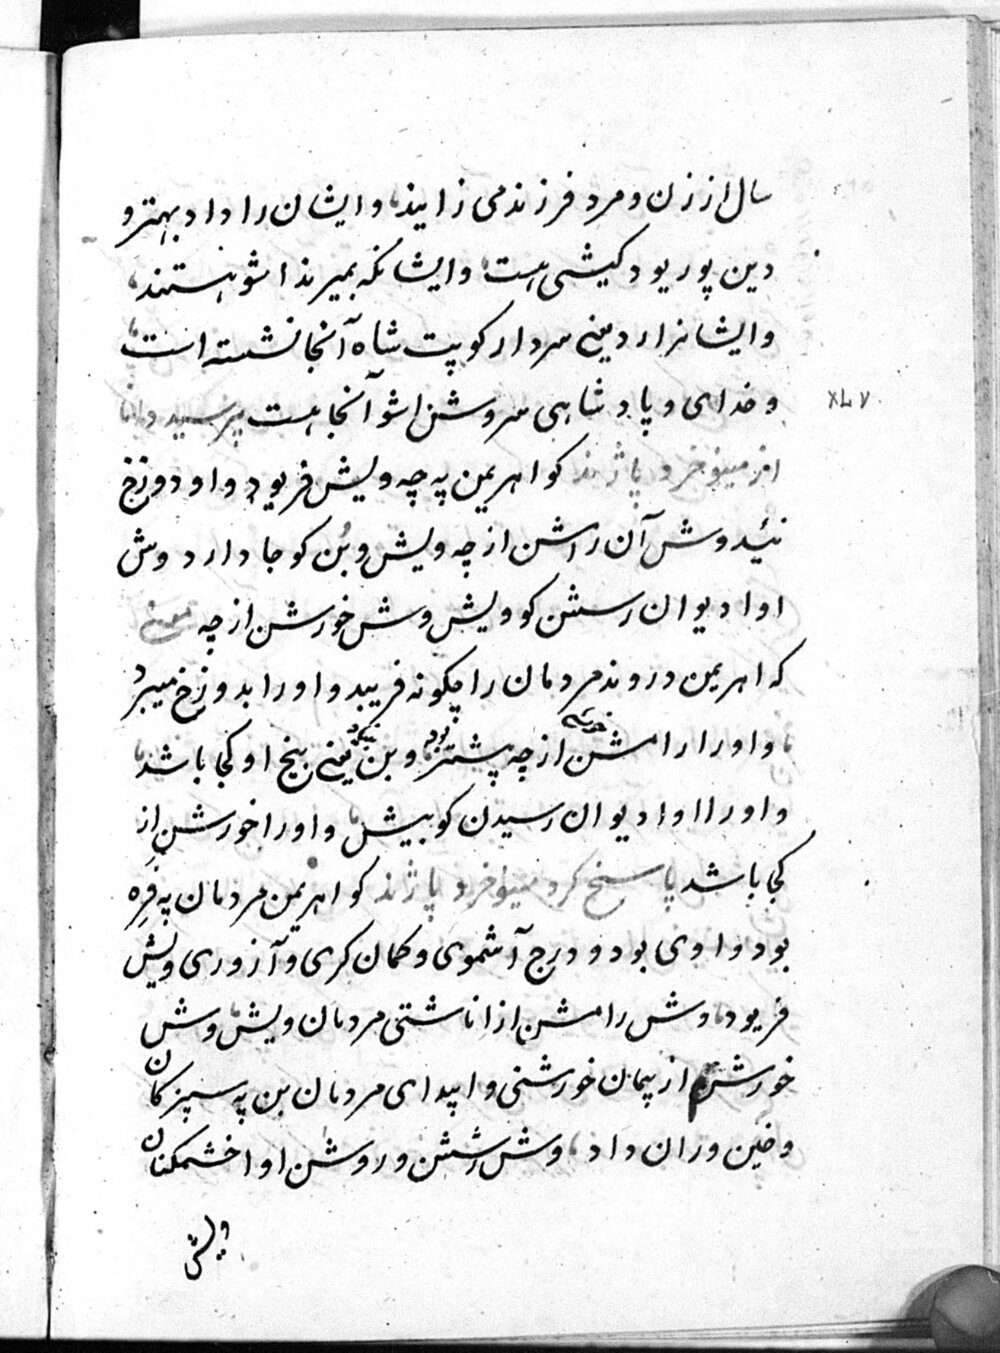 سال از زن و مرد فرزند می زایند و ایشان را داد بهتر و
دین پوریود کیشی هست و ایشانکه بمیرند اشو هستند
و ایشانرا رد یعنی سردار کوپت شاه آنجا نشسته است
و خدای و پادشاهی سروشن اشو آنجا هست پرسید دانا
XLV
از مینوخرد پاژند کو اهریمن په چه ویش فریود و او دوزخ
نئید وش آن رامشن از چه ویش و بُن کو جا دارد وش
اوا دیوان رسشن کو ویش وش خورشن از چه معنی
که اهریمن دروند مردمان را چگونه فریبد و او را بدوزخ میبرد
و او را رامشن از چه پیشتر بود و بن یعنی بیخ او کجا باشد
و او را اوا دیوان رسیدن کو بیش و او را خورشن از
کجا باشد پاسخ کرد مینوخرد پاژند کو اهریمن مردمان په فره
بود و اوی بود و درج آشموی و گمان گری و آزوری ویش
فریود وش رامشن از اناشتی مردمان ویش وش
خورشن از پیمان خورشنی و اپیدای مردمان بن په سپزگان
و کین وران دارد وش رسشن و روشن اوا خشمگنان
ویش